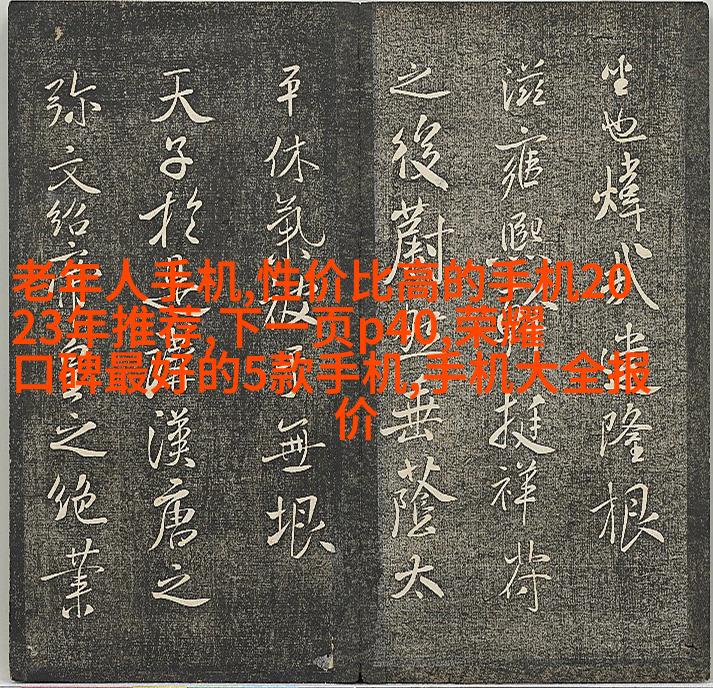 老年人手机,性价比高的手机20
23年推荐,下一页p40,荣耀
口碑最好的5款手机,手机大全报
价
也煒隆根
滋雍熙挺祥符
之後蔚垂蔭太
平休氣無垠
天子於是講漢唐之
弥文紹帝皇之絶業